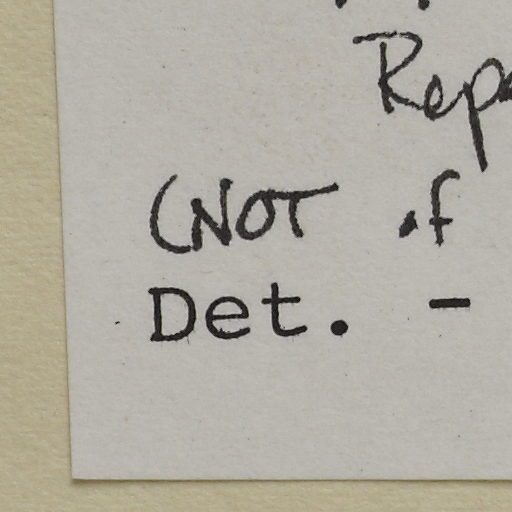 Repe
(NOT of
Det. -